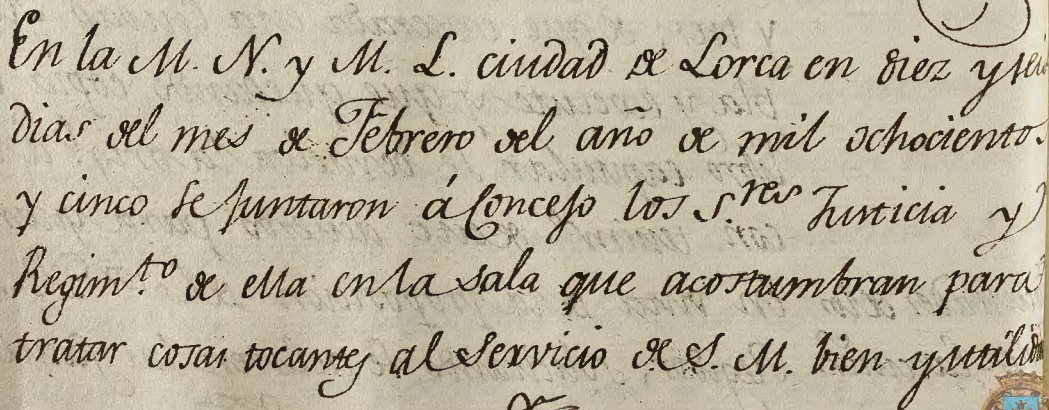 En la M. N. y M. L. ciudad de Lorca en diez y seis
dias del mes de Febrero del año de mil ochocientos
y cinco se juntaron á Concejo los S.res Justicia y
Regim.to de ella en la sala que acostumbran para
tratar cosas tocantes al Servicio de S. M. bien y utilidad